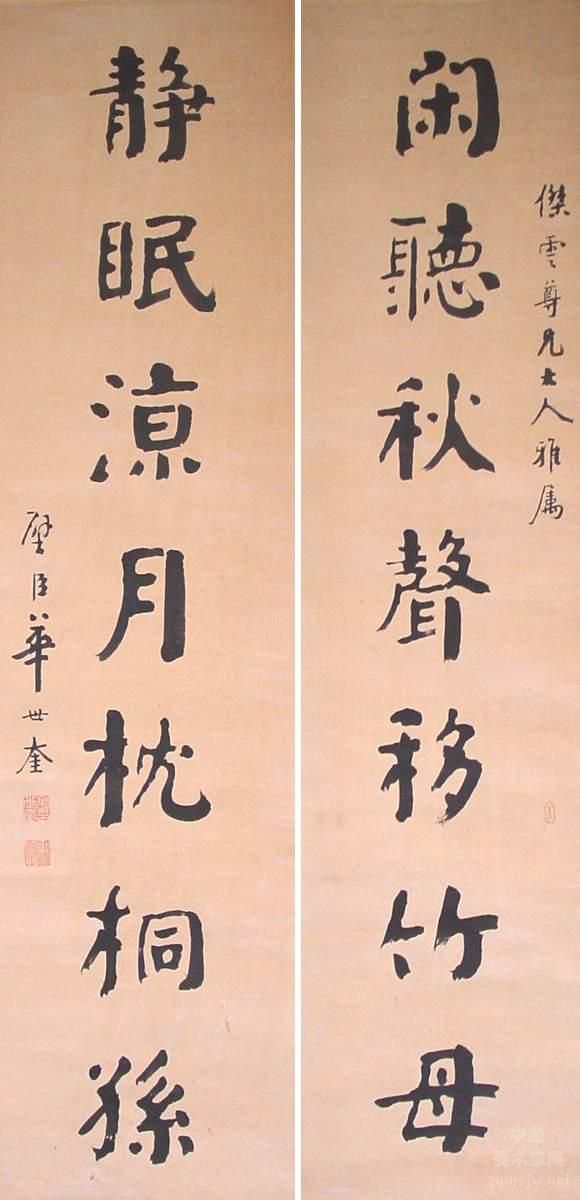 傑雲尊兄大人雅属
闲聽秋聲移竹母
静眠涼月枕桐孫
璧臣華世奎
中國
美术家网
zgmsjw.net